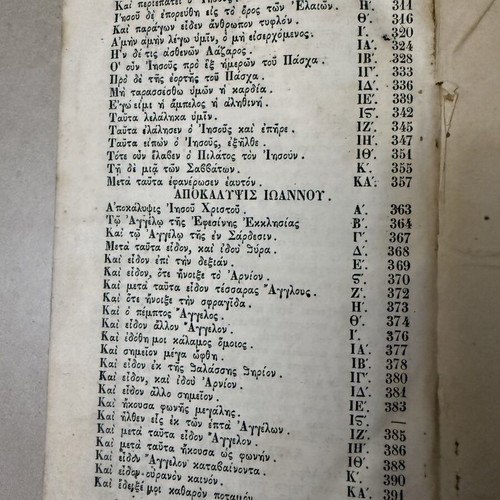 Καὶ περιεπάτει ὁ Ἰησοῦς Η΄. 311
Ἰησοῦ δὲ ἐπορεύθη εἰς τὸ ὄρος τῶν Ἐλαιῶν.
Καὶ παράγων εἶδεν ἄνθρωπον τυφλόν. Θ΄. 316
Ἀμὴν ἀμὴν λέγω ὑμῖν, ὁ μὴ εἰσερχόμενος. Ι΄. 320
Ἦν δέ τις ἀσθενῶν Λάζαρος. ΙΑ΄. 324
Ὁ οὖν Ἰησοῦς πρὸ ἓξ ἡμερῶν τοῦ Πάσχα. ΙΒ΄. 328
Πρὸ δὲ τῆς ἑορτῆς τοῦ Πάσχα. ΙΓ΄. 333
Μὴ ταρασσέσθω ὑμῶν ἡ καρδία. ΙΔ΄. 336
Ἐγώ εἰμι ἡ ἄμπελος ἡ ἀληθινή. ΙΕ΄. 339
Ταῦτα λελάληκα ὑμῖν. ΙϚ΄. 342
Ταῦτα ἐλάλησεν ὁ Ἰησοῦς καὶ ἐπῆρε. ΙΖ΄. 345
Ταῦτα εἰπὼν ὁ Ἰησοῦς, ἐξῆλθε. ΙΗ΄. 347
Τότε οὖν ἔλαβεν ὁ Πιλάτος τὸν Ἰησοῦν. ΙΘ΄. 351
Τῇ δὲ μιᾷ τῶν Σαββάτων. Κ΄. 355
Μετὰ ταῦτα ἐφανέρωσεν ἑαυτόν. ΚΑ΄. 357
ΑΠΟΚΑΛΥΨΙΣ ΙΩΑΝΝΟΥ.
Ἀποκάλυψις Ἰησοῦ Χριστοῦ. Α΄. 363
Τῷ Ἀγγέλῳ τῆς Ἐφεσίνης Ἐκκλησίας Β΄. 364
Καὶ τῷ Ἀγγέλῳ τῆς ἐν Σάρδεσιν. Γ΄. 367
Μετὰ ταῦτα εἶδον, καὶ ἰδοὺ θύρα. Δ΄. 368
Καὶ εἶδον ἐπὶ τὴν δεξιάν. Ε΄. 369
Καὶ εἶδον, ὅτε ἤνοιξε τὸ Ἀρνίον. Ϛ΄. 370
Καὶ μετὰ ταῦτα εἶδον τέσσαρας Ἀγγλους. Ζ΄. 372
Καὶ ὅτε ἤνοιξε τὴν σφραγῖδα. Η΄. 373
Καὶ ὁ πέμπτος Ἄγγελος. Θ΄. 374
Καὶ εἶδον ἄλλον Ἄγγελον. Ι΄. 376
Καὶ ἐδόθη μοι κάλαμος ὅμοιος. ΙΑ΄. 377
Καὶ σημεῖον μέγα ὤφθη. ΙΒ΄. 378
Καὶ εἶδον ἐκ τῆς θαλάσσης θηρίον. ΙΓ΄. 380
Καὶ εἶδον, καὶ ἰδοὺ Ἀρνίον. ΙΔ΄. 381
Καὶ εἶδον ἄλλο σημεῖον. ΙΕ΄. 383
Καὶ ἤκουσα φωνῆς μεγάλης. ΙϚ΄. —
Καὶ ἦλθεν εἷς ἐκ τῶν ἑπτὰ Ἀγγέλων. ΙΖ΄. 385
Καὶ μετὰ ταῦτα εἶδον Ἄγγελον. ΙΗ΄. 386
Καὶ μετὰ ταῦτα ἤκουσα ὡς φωνήν. ΙΘ΄. 388
Καὶ εἶδον Ἄγγελον καταβαίνοντα. Κ΄. 390
Καὶ εἶδον οὐρανὸν καινόν. ΚΑ΄. 391
Καὶ ἔδειξέ μοι καθαρὸν ποταμόν